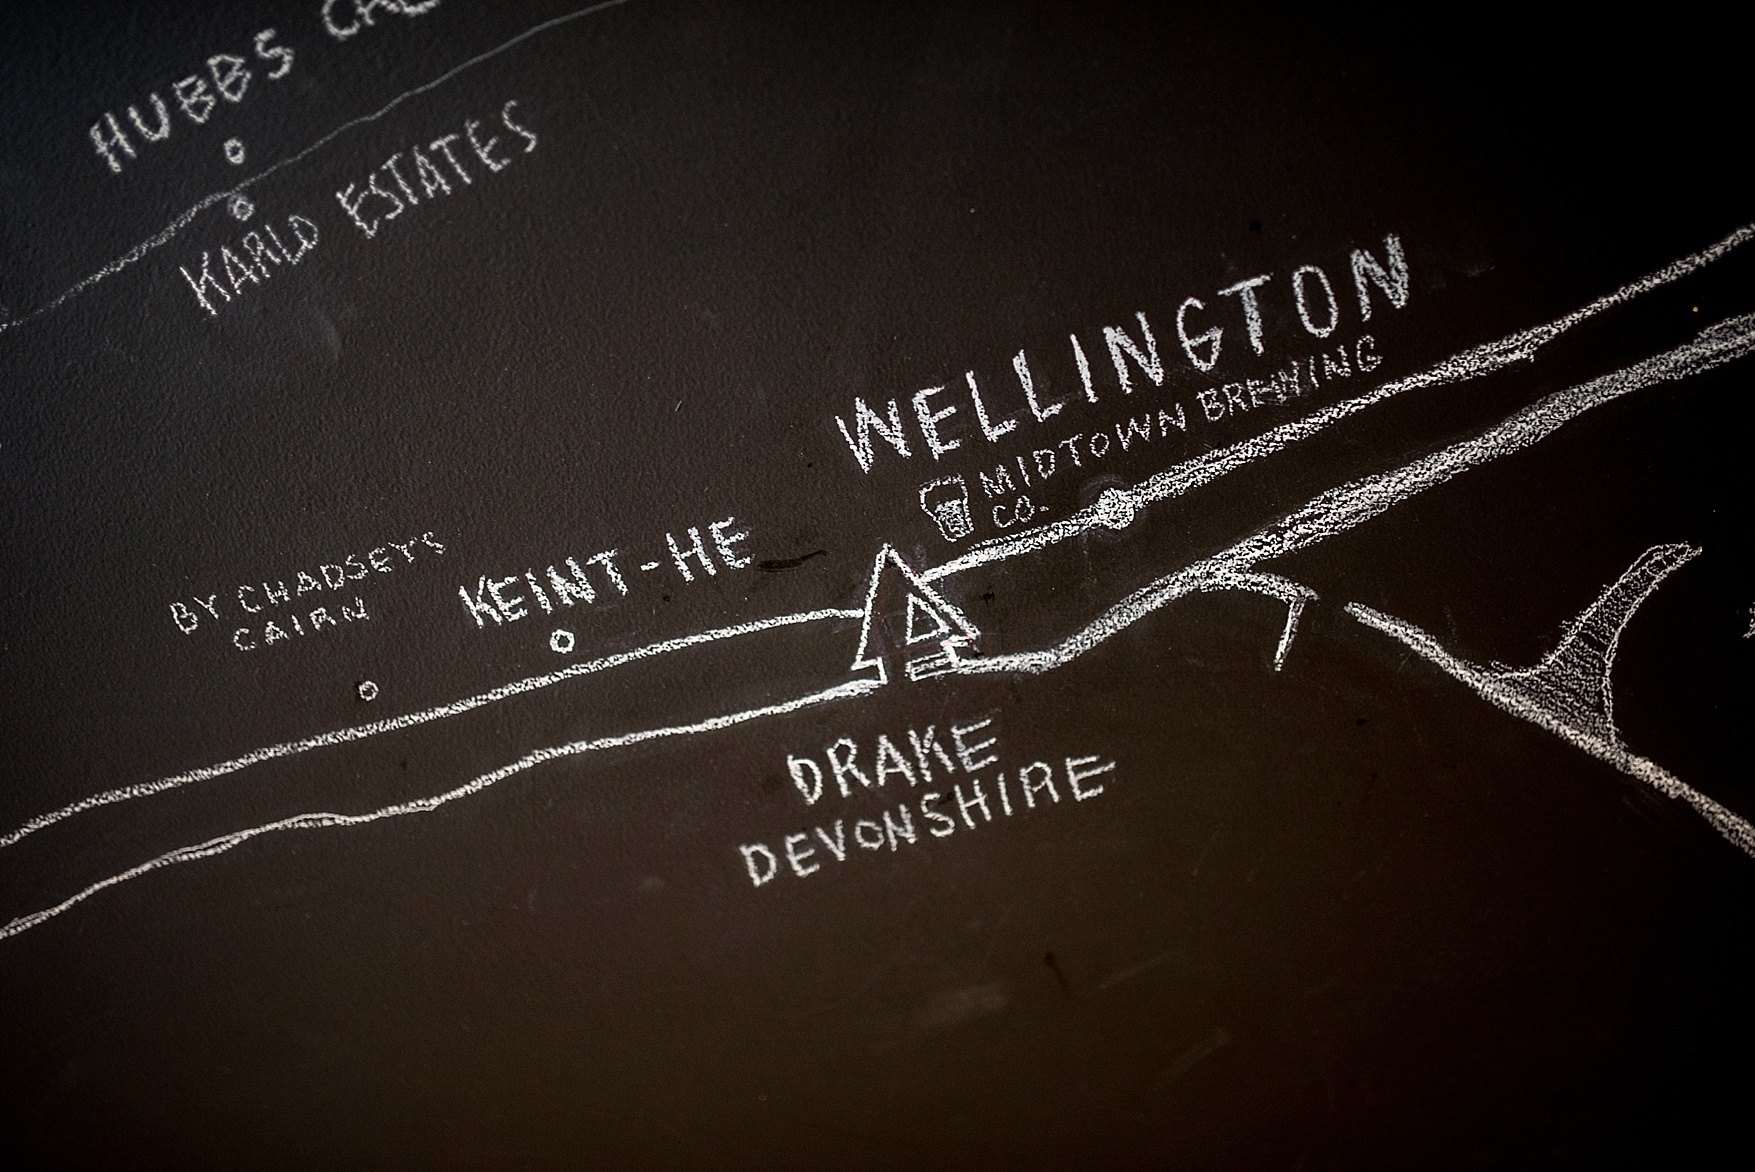 HUBBS
KARLO ESTATES
WELLINGTON
MIDTOWN BREWING
CO.
KEINT-HE
BY CHADSEY'S
CAIRN
DRAKE
DEVONSHIRE